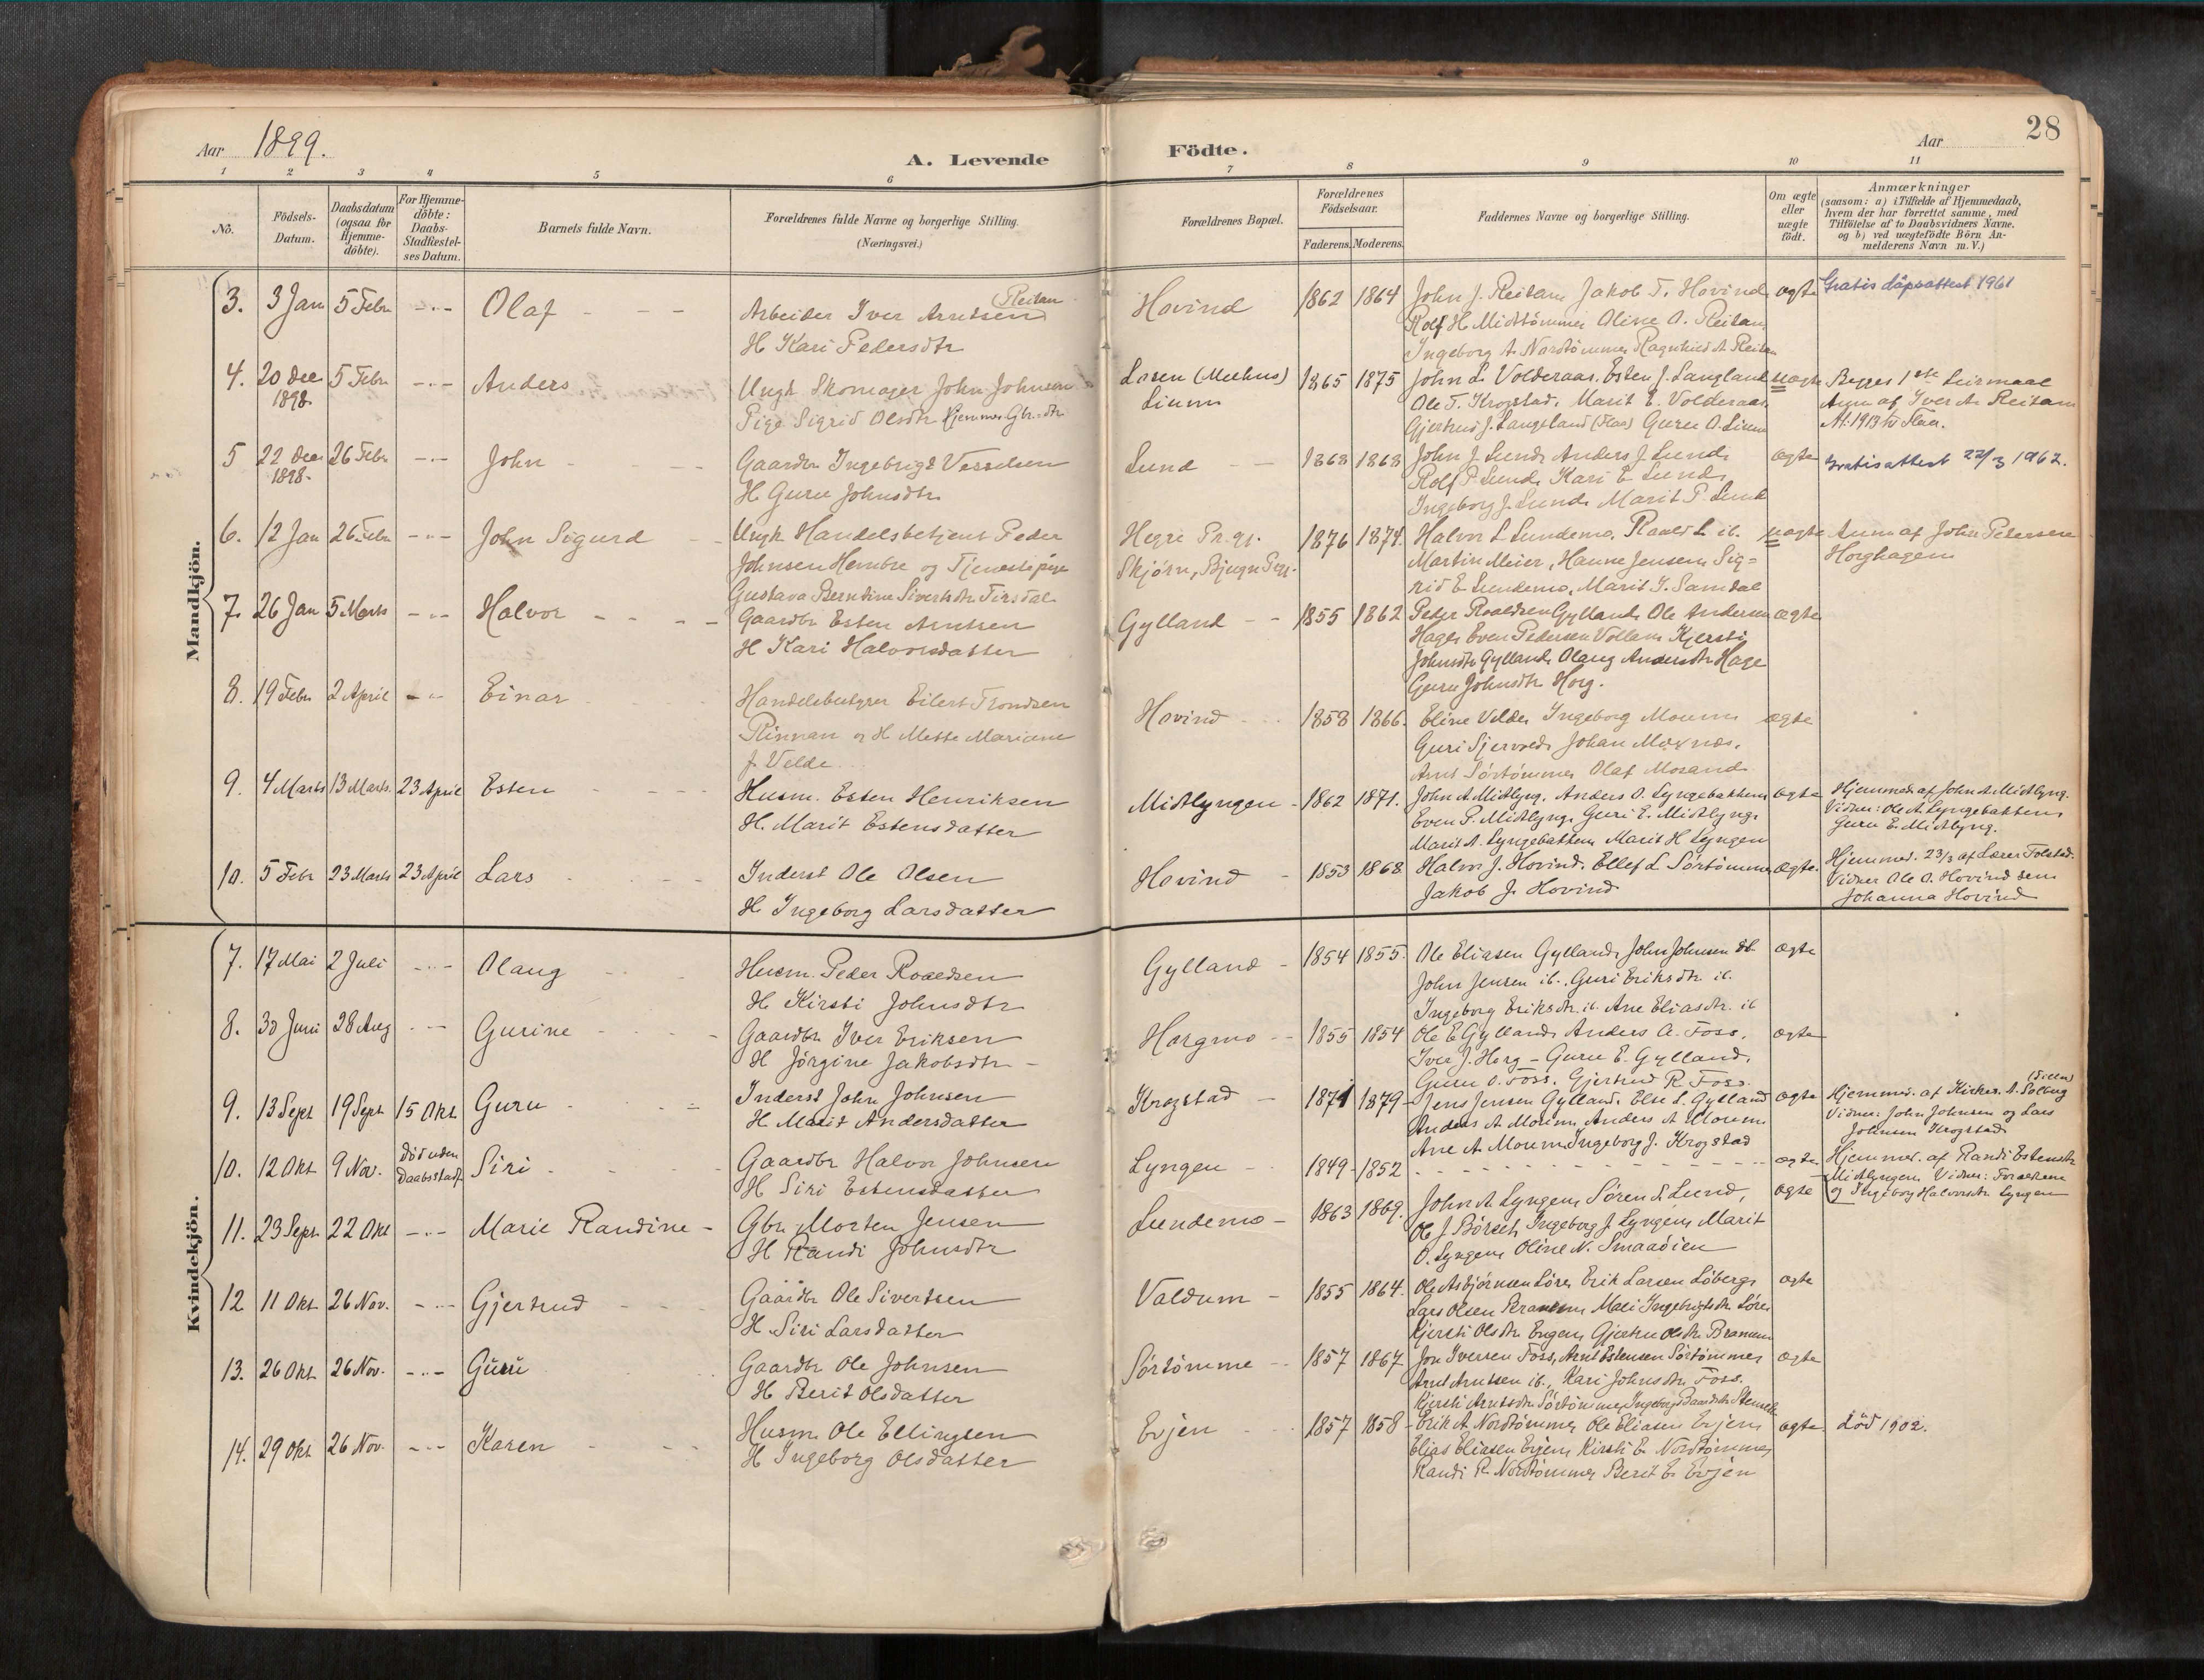 Aar 1899.
A. Levende
Födte.
Aar
28
1 2 3 4 5 6 7 8 9 10 11
No.
Födsels-
Datum.
Daabsdatum
(ogsaa for
Hjemme-
döbte).
For Hjemme-
döbte:
Daabs-
Stadfæstel-
ses Datum.
Barnets fulde Navn.
Forældrenes fulde Navne og borgerlige Stilling.
(Næringsvei.)
Forældrenes Bopæl.
Forældrenes
Födselsaar.
Faderens. Moderens.
Faddernes Navne og borgerlige Stilling.
Om ægte
eller
uægte
födt.
Anmærkninger
(saasom: a) i Tilfælde af Hjemmedaab,
hvem der har forrettet samme, med
Tilföielse af to Daabsvidners Navne,
og b) ved uægtefödte Börn An-
melderens Navn m. V.)
Mandkjön.
3. 3 Jan 5 Febr -"- Olaf
Reitan
Arbeider Iver Arntsen
H Kari Pedersdtr
Hovind 1862 1864
John J. Reitan, Jakob T. Hovind
Rolf H. Midttömme, Oline O. Reitan,
Ingeborg A. Nordtömme, Ragnhild A. Reitan
ægte
Gratis dåpsattest 1961
4. 20 Dec 1898. 5 Febr -"- Anders
Ungk Skomager John Johnsen
Pige Sigrid Olsdtr hjemme Gbr.dtr
Losen (Meehus)
Lium
1865 1875
John L. Volderaas, Esten J. Langland
Ole T. Krogstad, Marit E. Volderaas,
Gjertrud J. Langeland (Flaa) Guru O. Lium
uægte
Begges 1ste Leirmaal
Anm af Iver A. Reitan
5 22 Dec 1898. 26 Febr -"- John
Gaardbr Ingebrigt Vesselsen
H Guru Johnsdtr
Lund 1868 1868
John J. Lund, Anders J. Lund,
Rolf P. Lund, Kari E Lund,
Ingeborg J. Lund, Marit P. Lund
ægte
Gratisattest 22/3 1962.
6. 12 Jan 26 Febr -"- John Sigurd
Ungk Handelsbetjent Peder
Johnsen Hembre og Tjenestepige
Gustava Berntine Sivertsdtr Tirsdal
Hegre Pr.gj.
Skjörn, Bjugn Pgj.
1876 1874.
Halvor L Lundemo, Roald L. ib.
Martin Meier, Hanne Jensen, Sig-
rid E. Lundemo, Marit I. Samdal
uægte
Anm af John Petersen
Horghagen
7. 26 Jan 5 Marts -"- Halvor
Gaardbr Esten Arntsen
H Kari Halvorsdatter
Gylland 1855 1862
Peder Roaldsen Gylland, Ole Andersen
Hage, Even Pedersen Vollan, Kjersti
Johnsdtr Gylland, Olaug Andersdtr Hage
Guru Johnsdtr Horg.
ægte
8. 19 Febr 2 April -"- Einar
Handelsbestyrer Eilert Trondsen
Rinnan og H Mette Mariane
f. Velde
Hovind 1858 1866.
Eline Velde, Ingeborg Moum
Guri Sjervold, Johan Moxnes,
Arnt Sörtömme, Olaf Mosand
ægte
9. 4 Marts 13 Marts. 23 April Esten
Husm. Esten Henriksen
H. Marit Estensdatter
Midtlyngen 1862 1871.
John A. Midtlyng, Anders O. Lyngebakken
Even P. Midtlyng, Guri E. Midtlyng,
Marit A. Lyngebakken, Marit H Lyngen
ægte
Hjemmed. af John A. Midtlyng.
Vidner: Ole A. Lyngebakken,
Guru E. Midtlyng.
10. 5 Febr 23 Marts 23 April Lars
Inderst Ole Olsen
H Ingeborg Larsdatter
Hovind 1853 1868
Halvor J. Hovind, Ellef L Sörtömme
Jakob J. Hovind
ægte.
Hjemmed. 23/3 af Lærer Folstad.
Vidner Ole O. Hovind sen
Johanna Hovind
Kvindekjön.
7. 17 Mai 2 Juli -"- Olaug
Husm. Peder Roaldsen
H Kirsti Johnsdtr
Gylland 1854 1855.
Ole Eliasen Gylland, John Johnsen ib.
John Jensen ib., Guri Eriksdtr. ib.
Ingeborg Eriksdtr. ib. Ane Eliasdtr. ib
ægte
8. 30 Juni 28 Aug -"- Gurine
Gaardbr Iver Eriksen
H Jörgine Jakobsdtr
Horgmo 1855 1854
Ole E Gylland, Anders A. Foss,
Iver J. Horg - Guru E. Gylland,
Guru O. Foss, Gjertrud R Foss.
ægte
9. 13 Sept 19 Sept 15 Okt. Guru
Inderst John Johnsen
H Marit Andersdatter
Krogstad 1871 1879
Jens Jensen Gylland, Else L. Gylland
Anders A Moum, Anders A Moum
Ane A Moum, Ingeborg J. Krogstad
ægte
Hjemmed. af Kirkes. A. Solberg
Vidner: John Johnsen og Lars
Johnsen Krogstad
10. 12 Okt. 9 Nov. död uden Daabsstadf. Siri
Gaardbr Halvor Johnsen
H Siri Estensdatter
Lyngen 1849 1852
ægte
Hjemmed. af Randi Estensdtr
Midtlyngen Vidner: Forældrene
og Ingeborg Halvorsdtr Lyngen
11. 23 Sept 22 Okt -"- Marie Randine
Gbr. Morten Jensen
H Randi Johnsdtr
Lundemo 1863 1869.
John A. Lyngen, Sören S. Lund,
Ole J Börseth, Ingeborg J. Lyngen, Marit
O. Lyngen, Oline N. Smaaöien
ægte
12 11 Okt. 26 Nov. -"- Gjertrud
Gaardbr Ole Sivertsen
H. Siri Larsdatter
Valdum 1855 1864.
Ole Asbjörnsen Löre, Erik Larsen Löberg,
Lars Olsen Bramm, Mali Ingebrigtsdtr Löre,
Kjersti Olsdtr. Engen, Gjertru Olsdtr. Bramm
ægte
13. 26 Okt. 26 Nov. -"- Guru
Gaardbr Ole Johnsen
H Berit Olsdatter
Sörtömme 1857 1867
Jon Iversen Foss, Arnt Estensen Sörtömme,
Arnt Arntsen ib., Kari Johnsdtr. Foss.
Kjersti Arntsdtr Sörtömme, Ingeborg Baardsdtr
ægte
14. 29 Okt. 26 Nov. -"- Karen
Husm. Ole Ellingsen
H Ingeborg Olsdatter
Evjen 1857 1858
Erik A. Nordtömme, Ole Eliasen Evjen,
Elias Eliasen Evjen, Kirsti E. Nordtömme,
Randi R. Nordtömme, Berit E. Evjen
ægte
död 1902.